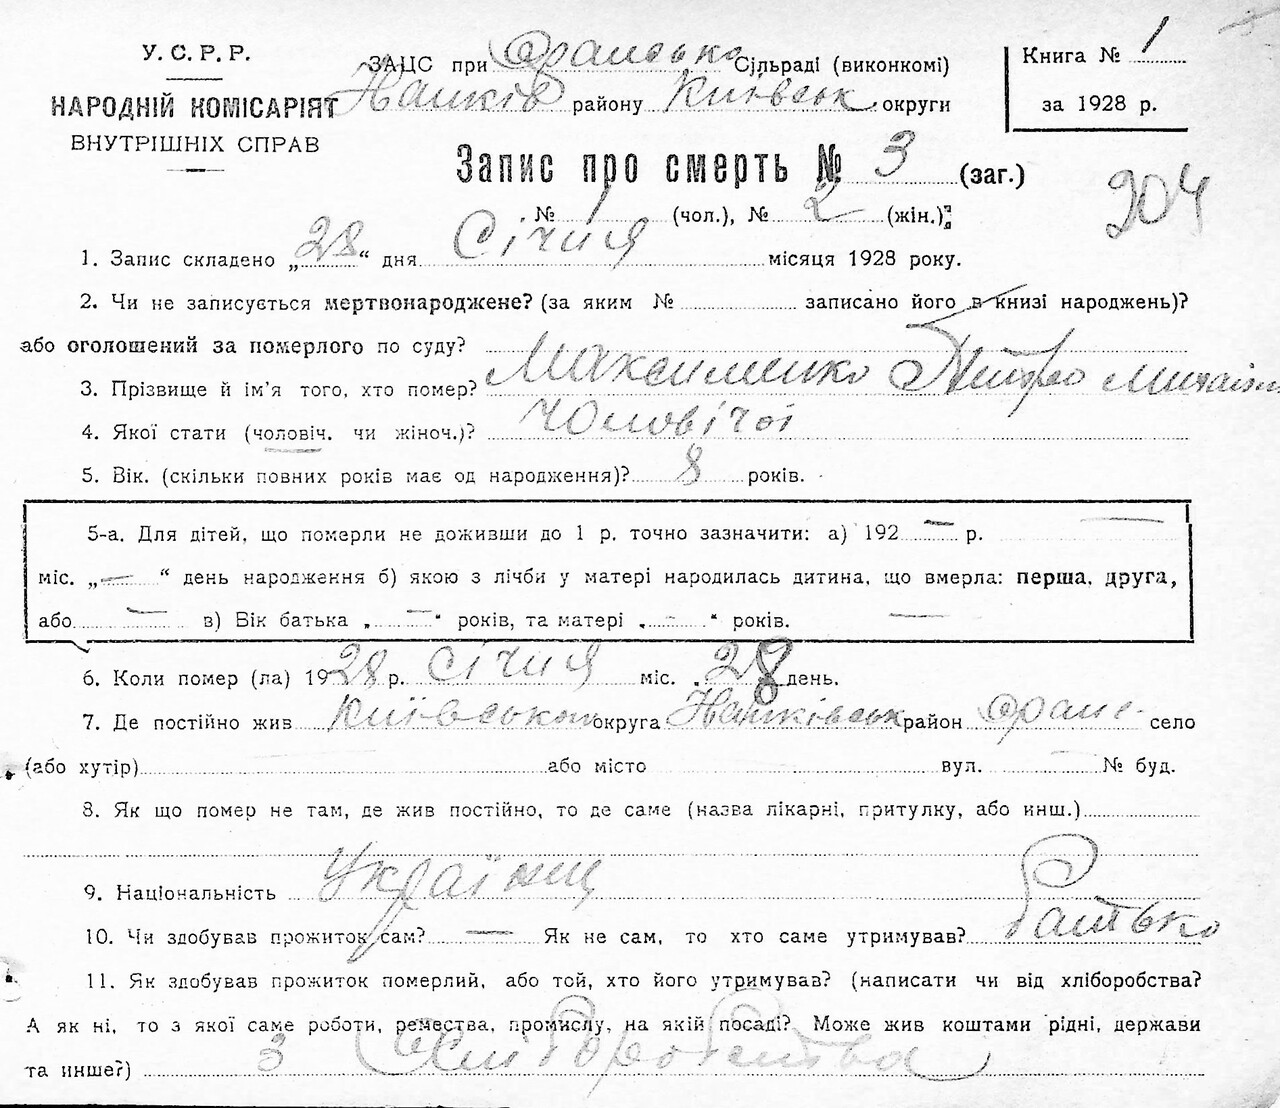 У.С.Р.Р.
НАРОДНІЙ КОМІСАРІЯТ
ВНУТРІШНІХ СПРАВ
ЗАЦС при Орансько Сільраді (виконкомі)
району Київськ. округи
Книга № 1
за 1928 р.
Запис про смерть № 3 (заг.)
№ 1 (чол.), № 2 (жін.);
204
1. Запис складено „28“ дня Січня місяця 1928 року.
2. Чи не записується мертвонароджене? (за яким № записано його в книзі народжень)?
або оголошений за померлого по суду?
3. Прізвище й ім'я того, хто помер? Максименко Петро
4. Якої стати (чоловіч. чи жіноч.)? Чоловічої
5. Вік. (скільки повних років має од народження)? 8 років.
5-а. Для дітей, що померли не доживши до 1 р. точно зазначити: а) 192 — р. —
міс. „—“ день народження б) якою з лічби у матері народилась дитина, що вмерла: перша, друга,
або — в) Вік батька „—“ років, та матері „—“ років. —
6. Коли помер (ла) 1928 р. Січня міс. 28 день.
7. Де постійно жив Київською округа район Оране село
(або хутір) або місто вул. — № буд.
8. Як що помер не там, де жив постійно, то де саме (назва лікарні, притулку, або инш.)
9. Національність Українец
10. Чи здобував прожиток сам? — Як не сам, то хто саме утримував? Батько
11. Як здобував прожиток померлий, або той, хто його утримував? (написати чи від хліборобства?
А як ні, то з якої саме роботи, ремества, промислу, на якій посаді? Може жив коштами рідні, держави
та инше?) З Хліборобства